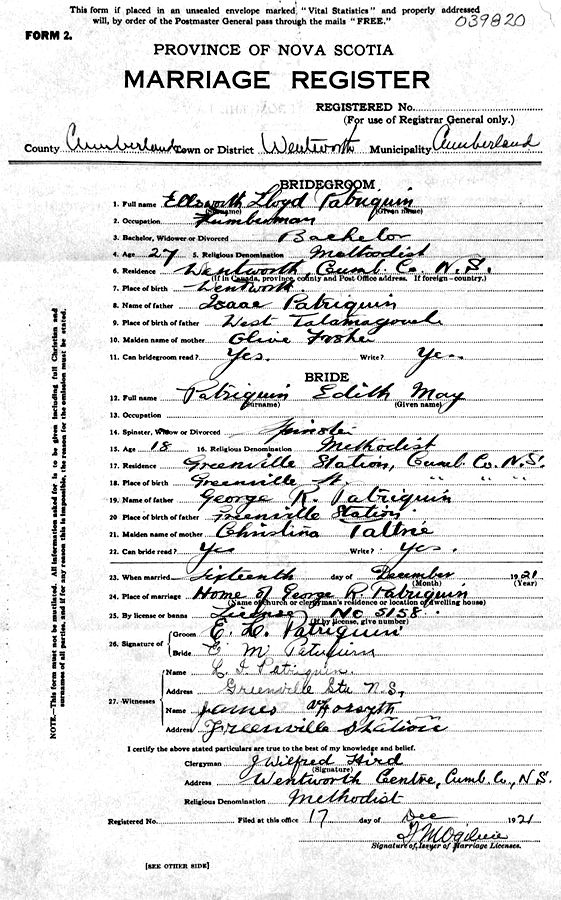 This form if placed in an unsealed envelope marked "Vital Statistics" and properly addressed
will, by order of the Postmaster General pass through the mails "FREE."
039820
FORM 2.
PROVINCE OF NOVA SCOTIA
MARRIAGE REGISTER
REGISTERED No.
(For use of Registrar General only.)
County Cumberland Town or District Wentworth Municipality Cumberland
BRIDEGROOM
1. Full name Ellsworth Lloyd Patriquin
(Surname) (Given name)
2. Occupation Lumberman
3. Bachelor, Widower or Divorced Bachelor
4. Age 27 5. Religious Denomination Methodist
6. Residence Wentworth, Cumb. Co. N.S.
(If in Canada, province, county and Post Office address. If foreign - country.)
7. Place of birth Wentworth
8. Name of father Isaac Patriquin
9. Place of birth of father West
10. Maiden name of mother Olive
11. Can bridegroom read? Yes. Write? Yes
BRIDE
12. Full name Patriquin Edith May
(Surname) (Given name)
13. Occupation
14. Spinster, Widow or Divorced Spinster
15. Age 18 16. Religious Denomination Methodist
17. Residence Greenville Station, Cumb. Co. N.S.
18. Place of birth Greenville " " "
19. Name of father George R. Patriquin
20. Place of birth of father Greenville Station
21. Maiden name of mother Christina Tattrie
22. Can bride read? Yes Write? Yes.
23. When married Sixteenth day of December 1921
(Month) (Year)
24. Place of marriage Home of George R Patriquin
(Name of church or clergyman's residence or location of dwelling house)
25. By license or banns License No. 5158
(If by license, give number)
26. Signature of Groom E. L. Patriquin
Bride E M Patriquin
27. Witnesses Name Patriquin
Address Greenville Sta N.S.,
Name James Forsyth
Address Greenville Station
I certify the above stated particulars are true to the best of my knowledge and belief.
Clergyman J Wilfred Hird
(Signature)
Address Wentworth Centre, Cumb. Co., N.S.
Religious Denomination Methodist
Registered No. Filed at this office 17 day of Dec 1921
Ogilvie
Signature of Issuer of Marriage Licenses.
[SEE OTHER SIDE]
NOTE—This form must not be mutilated. All information asked for is to be given including full Christian and
surnames of all parties, and if for any reason this is impossible, the reason for the omission must be stated.